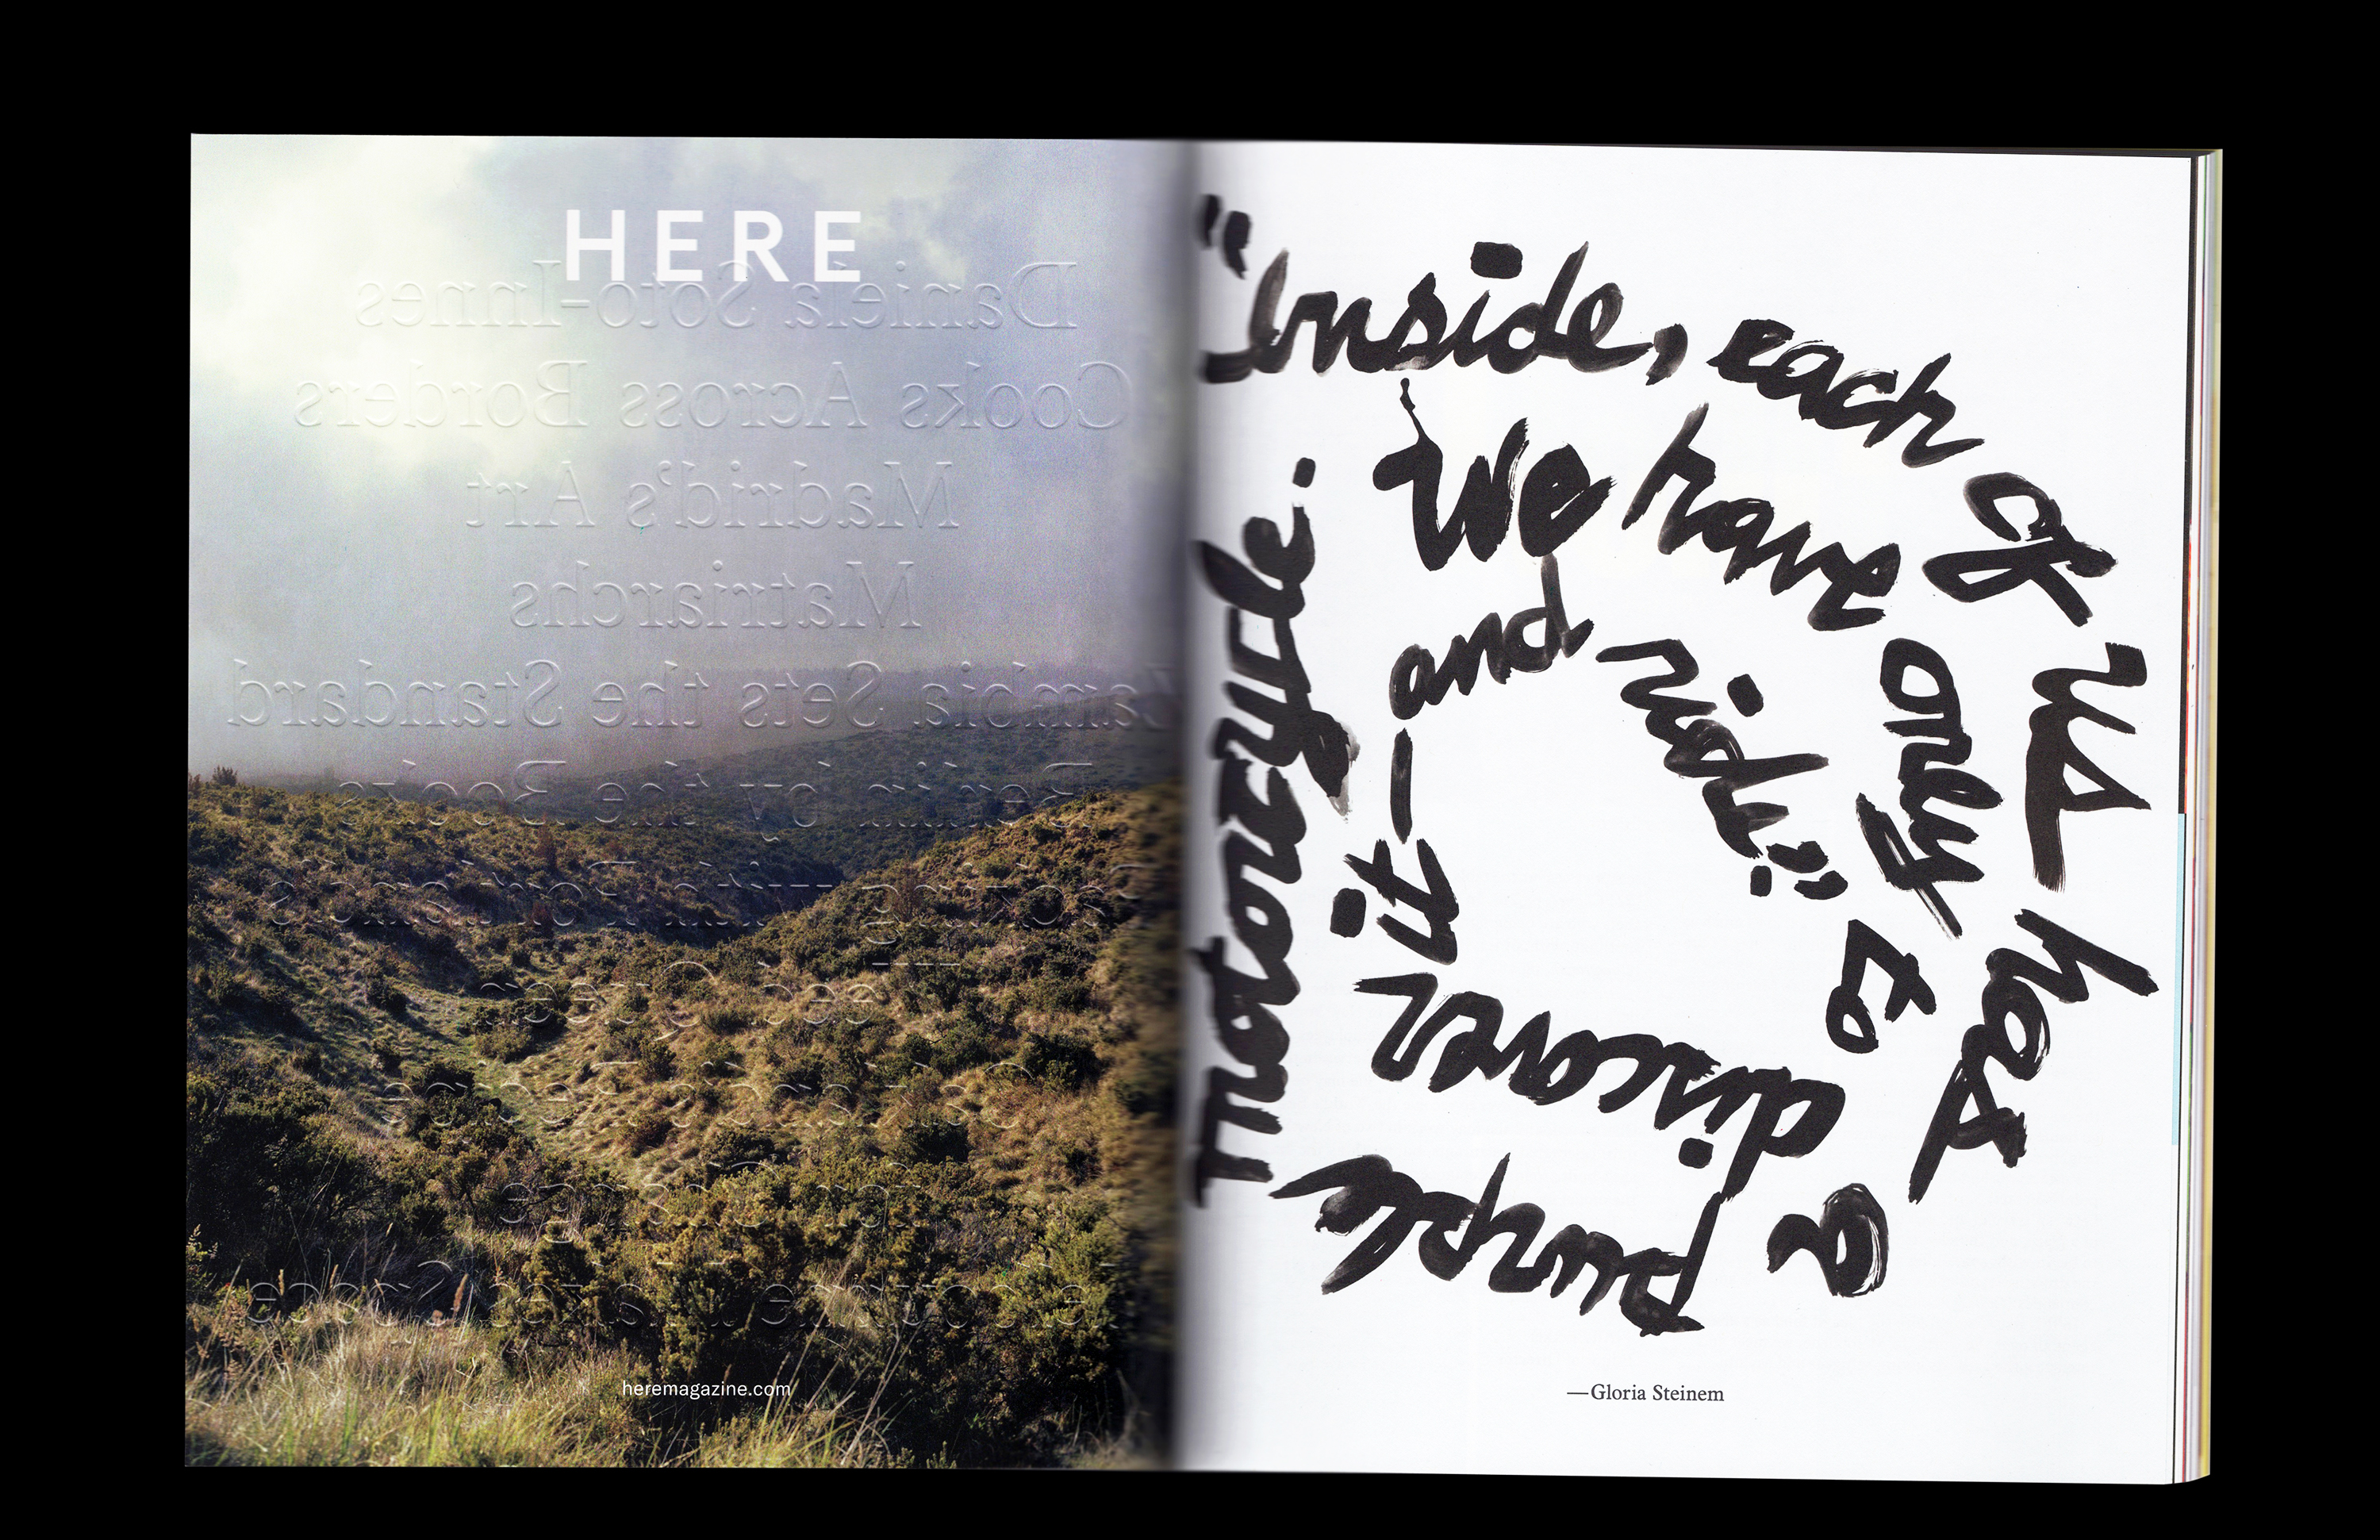 HERE
Daniela Soto-Innes
Cooks Across Borders
Madrid's Art
Matriarchs
Zambia Sets the Standard
Berlin by the Books
with
heremagazine.com
"inside, each of us has a purple motorcycle.
We have only to discover it—and ride."
—Gloria Steinem